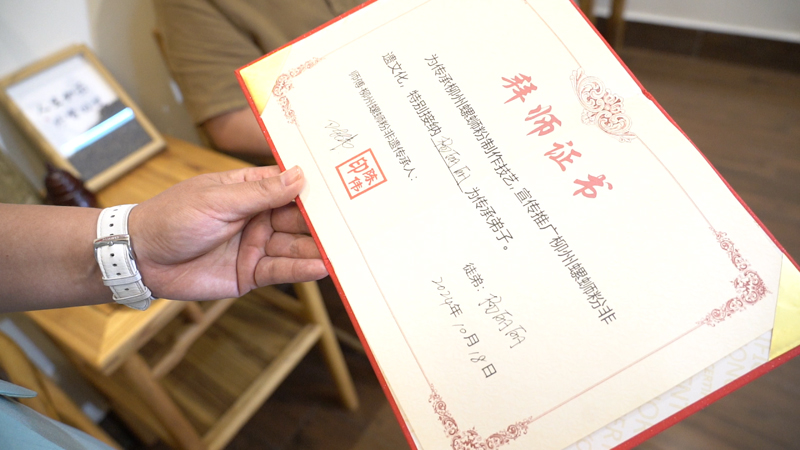 拜师证书
为传承柳州螺蛳粉制作技艺，宣传推广柳州螺蛳粉非
遗文化，特别接纳 陶丽丽 为传承弟子。
师傅 柳州螺蛳粉非遗传承人：
陈伟印
徒弟：陶丽丽
2024年10月18日